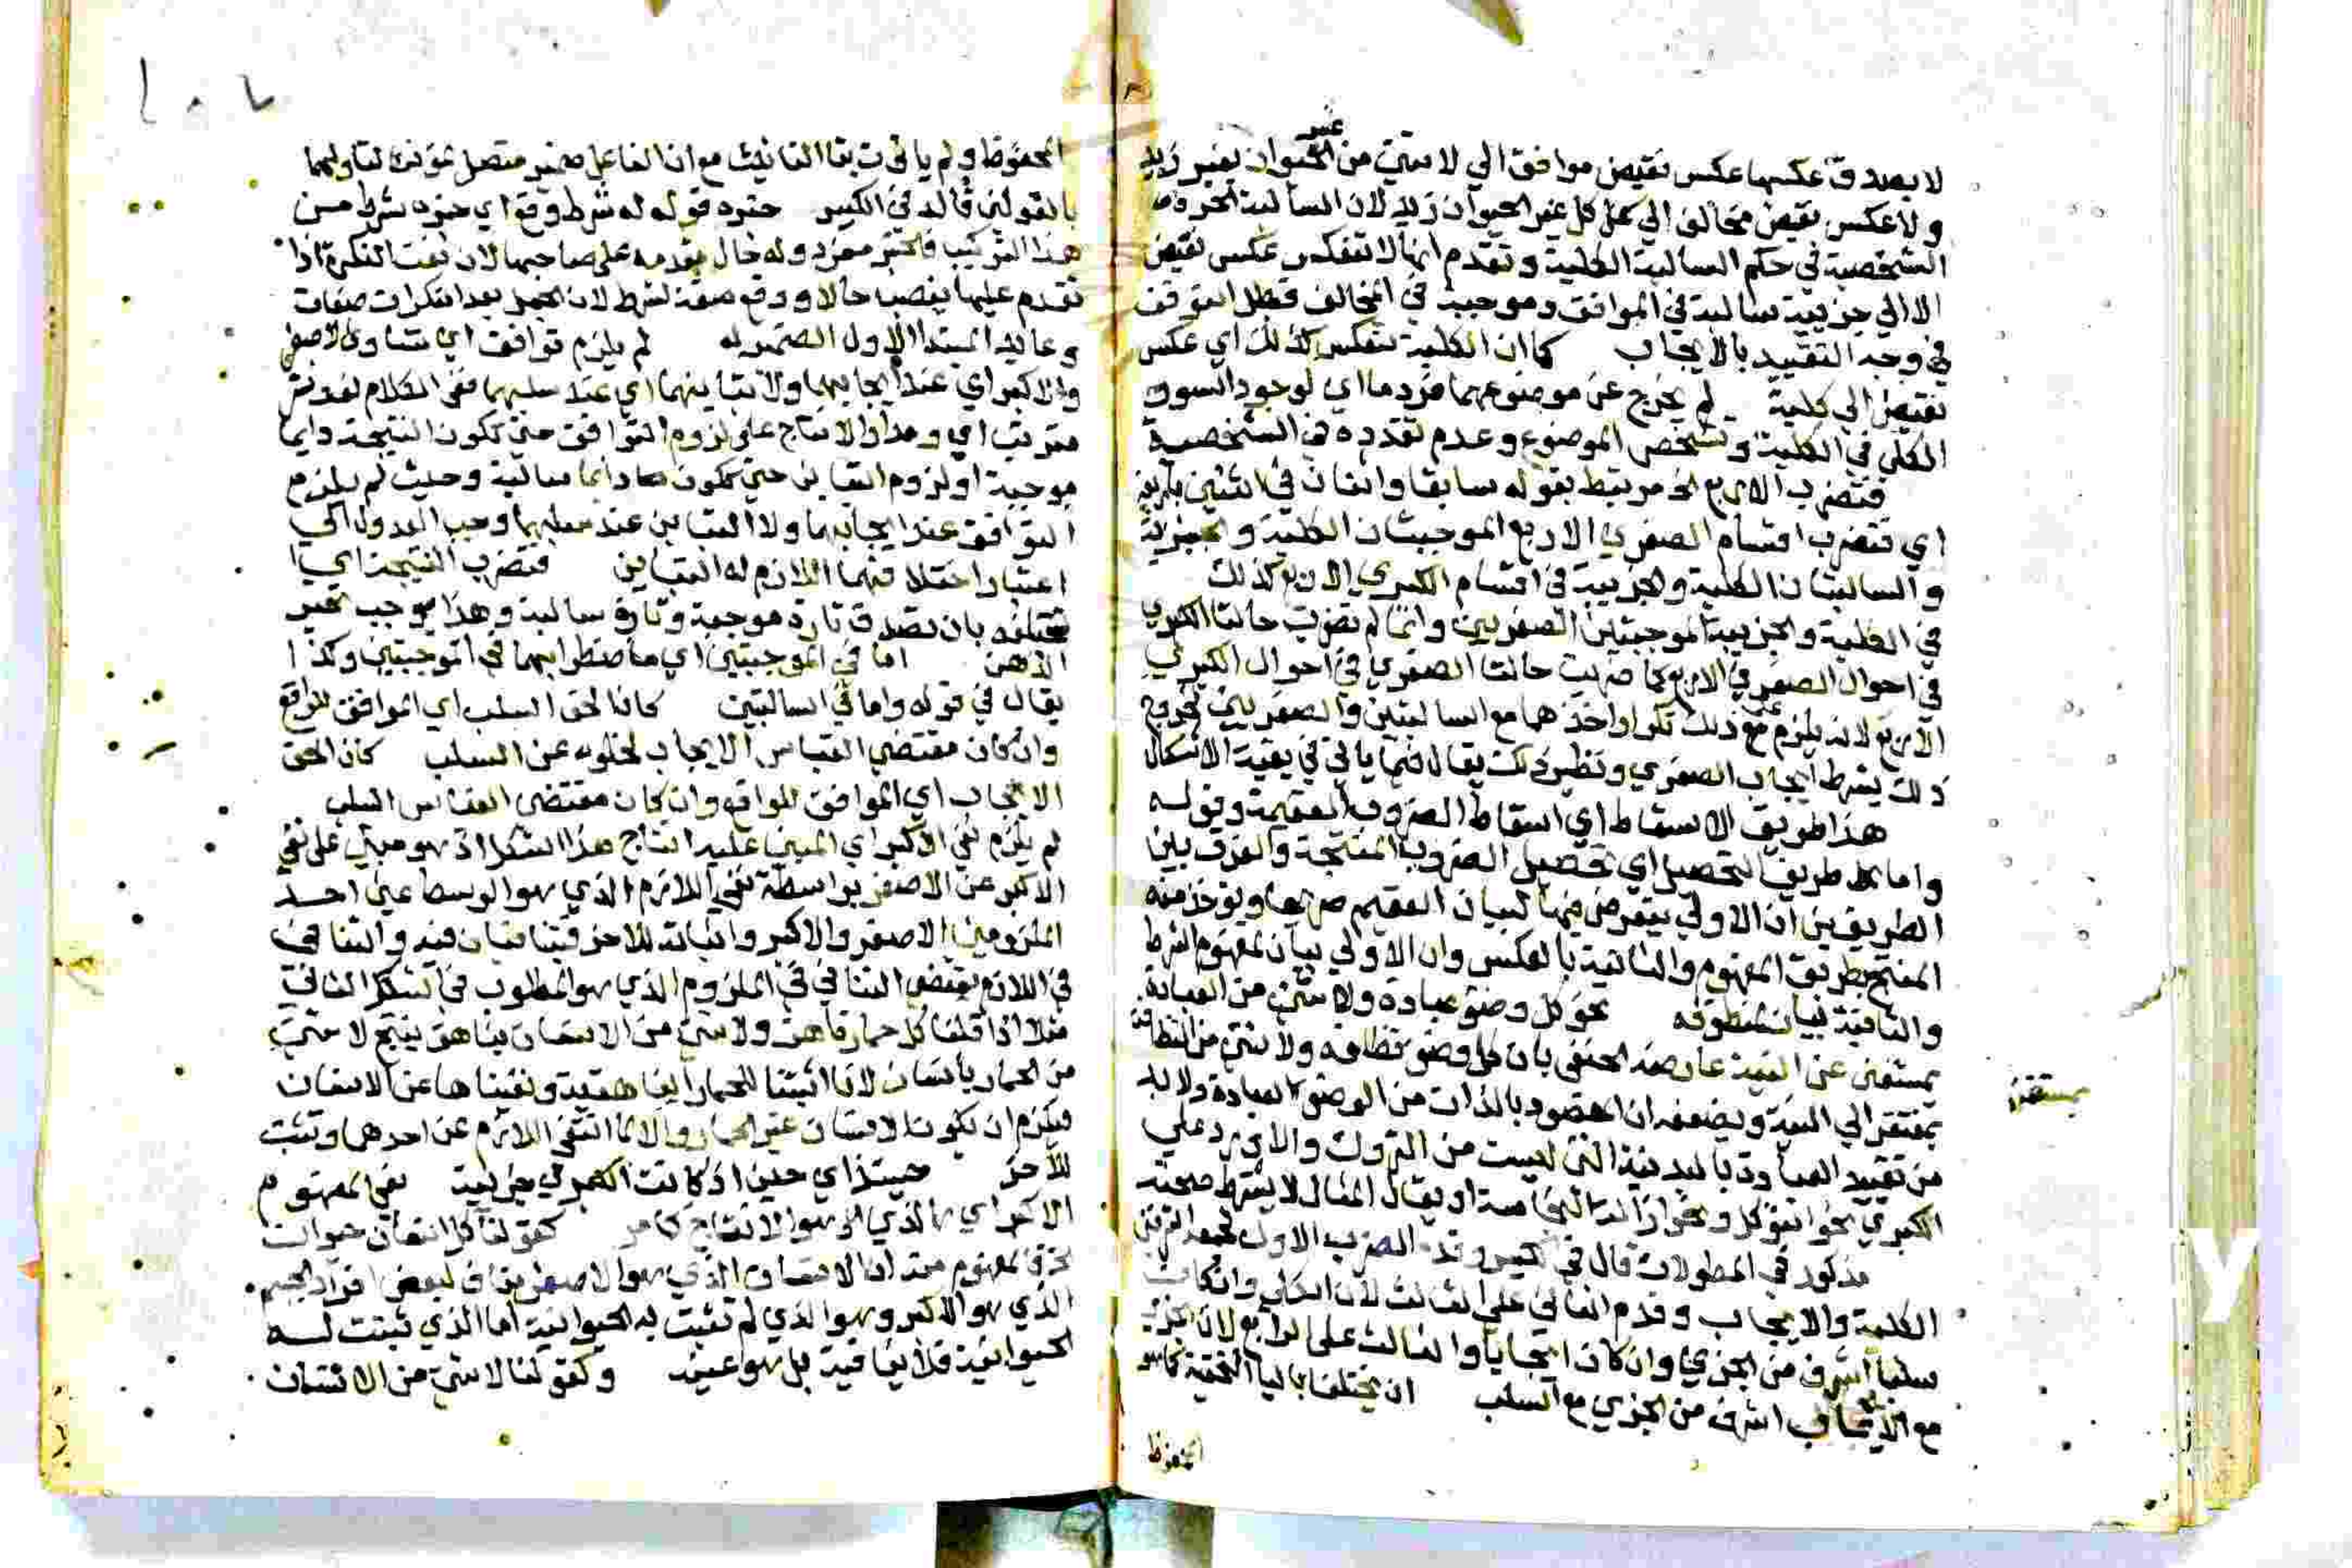 لا يصدق عكسها عكس نقيض موافق الي لا شيئ من غير الحيوان بغير زيد
ولا عكس نقيض مخالف الي كل غير الحيوان زيد لان السالبة
الشخصية في حكم السالبة الكلية وتقدم انها لا تنعكس عكس نقيض
الا الي جزيية سالبة في الموافق وموجبة في المخالف فبطل التوقف
في وجه التقييد بالايجاب كما ان الكلية تنعكس كذلك اي عكس
نقيض الي كلية لم يخرج عن موضوعهما فرد ما اي لوجود السور
الكلي في الكلية وتشخص الموضوع وعدم تعدده في الشخصية
فتضرب الاربع الخ مرتبط بقوله سابقا واثنان في اثنين باربعة
اي فتضرب اقسام الصغري الاربع الموجبتان الكلية والجزيية
والسالبتان الكلية والجزيية في اقسام الكبري الاربع كذلك
في الكلية والجزيية الموجبتين الصغريين وانما لم تضرب حالتا الكبري
في احوال الصغري الاربع كما ضربت حالتا الصغري في احوال الكبري
الاربع لانه يلزم علي ذلك تكرار اخذهما مع السالبتين الصغريين لخروج
ذلك بشرط ايجاب الصغري ونظير ذلك يقال فيما ياتي في بقية الاشكال
هذا طريق الاسقاط اي اسقاط الضروب العقيمة وقوله
واما طريق التحصيل اي تحصيل الضروب المنتجة والفرق بين
الطريقين ان الاولي يتعرض فيها لبيان العقيم صريحا ويوخذ منه
المنتج بطريق المفهوم والثانية بالعكس وان الاولي بيان لمفهوم الشرط
والثانية بيان لمنطوقه نحو كل وضوء عبادة ولا شيئ من العبادة
بمستغن عن النية عارضه الحنفي بان كل وضوء نظافة ولا شيئ من النظافة
بمفتقر الي النية ويضعفه ان المقصود بالذات من الوضوء العبادة ولا بد
من تقييد العبادة بالبدنية التي ليست من التروك والا يرد علي
الكبري نحو التوكل ونحو ازالة النجاسة او يقال المثال لا يشترط صحته
مذكور في المطولات قال في الكبير وقدم الضرب الاول لجمعه الشرفين
الكلية والايجاب وقدم الثاني علي الثالث لان الكلي وان كان
سلبا اشرف من الجزيي وان كان ايجابا والثالث علي الرابع لان الجزيي
مع الايجاب اشرف من الجزيي مع السلب ان يختلفا بالياء التحتية كما هو
المحفوظ
مستغن
المحفوظ ولم يات بتا التانيث مع ان الفاعل ضمير متصل مؤنث لتاولهما
بالقولين قاله في الكبير خبره قوله له شرط وقع اي خبره شرط من
هذا التركيب فالخبر مفرد وله حال مقدمه علي صاحبها لان نعت النكرة اذا
تقدم عليها ينصب حالا ووقع صفة لشرط لان الجمل بعد النكرات صفات
وعايد المبتدا الاول الضمير له لم يلزم توافق اي تساوي الاصغر
والاكبر اي عند ايجابهما ولا تباينهما اي عند سلبهما ففي الكلام لف ونشر
مرتب اي ومدار الانتاج علي لزوم التوافق حتي تكون النتيجة دايما
موجبة او لزوم التباين حتي تكون دايما سالبة وحيث لم يلزم
التوافق عند ايجابهما ولا التباين عند سلبهما وجب العدول الي
اعتبار اختلافهما اللازم له التباين فتضرب النتيجة اي
مختلفه بان تصدق تارة موجبة وتارة سالبة وهذا يوجب تحير
الذهن اما في الموجبتين اي اضطرابهما في الموجبتين وكذا
يقال في قوله واما في السالبتين كان الحق السلب اي الموافق للواقع
وان كان مقتضي القياس الايجاب لخلوه عن السلب كان الحق
الايجاب اي الموافق للواقع وان كان مقتضي القياس السلب
لم يلزم نفي الاكبر اي المبني عليه انتاج هذا الشكل اذ هو مبني علي نفي
الاكبر عن الاصغر بواسطة نفي اللازم الذي هو الوسط عن احد
الملزومين الاصغر والاكبر واثباته للاخر فيتنافيان فيه والتنافي
في اللازم يقتضي التنافي في الملزوم الذي هو المطلوب في الشكل الثاني
مثلا اذا قلنا كل حمار ناهق ولا شيئ من الانسان بناهق ينتج لا شيئ
من الحمار بانسان لانا اثبتنا للحمار الناهقية ونفيناها عن الانسان
فيلزم ان يكون الانسان غير الحمار والا لما انتفي اللازم عن احدهما وثبت
للاخر حينئذ اي حين اذ كانت الكبري جزيية نفي المفهوم
الاكبر الذي هو الانتاج كما مر كقولنا كل انسان حيوان
الذي هو الاكبر وهو الذي لم تثبت به الحيوانية اما الذي ثبتت له
الحيوانية فلا ينافيه بل هو عينه وكقولنا لا شيئ من الانسان